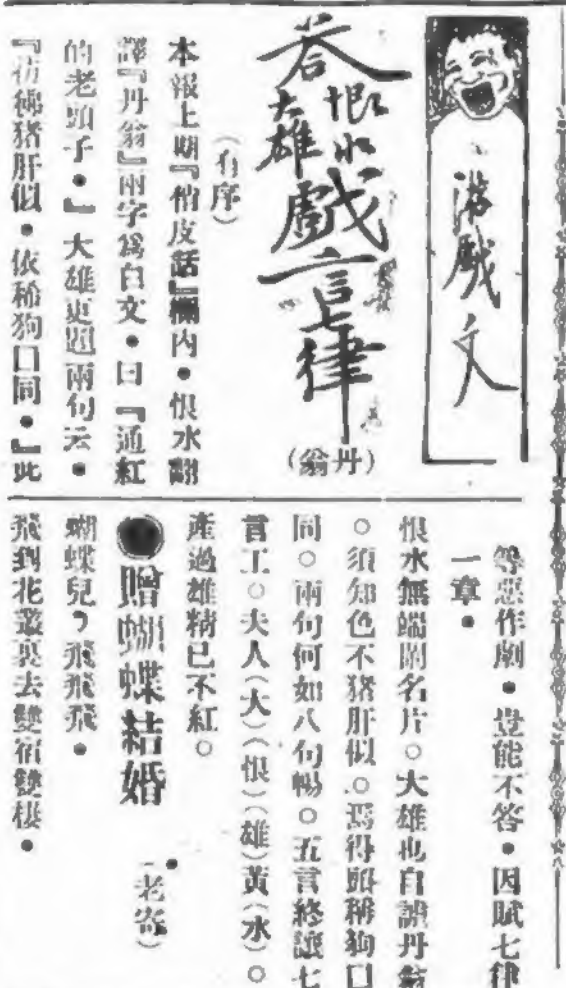 游戲文
答恨水大雄戲言七律
(丹翁)
(有序)
本報上期『俏皮話』欄內●恨水翻
譯『丹翁』兩字爲白文●曰『通紅
的老頭子●』大雄更題兩句云●
『彷彿猪肝似●依稀狗口同●』此
等惡作劇●豈能不答●因賦七律
一章●
恨水無端鬧名片○大雄也自謅丹翁
○須知色不猪肝似○焉得頭稱狗口
同○兩句何如八句暢○五言終讓七
言工○夫人(大)(恨)(雄)黃(水)○
產過雄精已不紅○
●贈蝴蝶結婚 (老寄)
蝴蝶兒,飛飛飛●
飛到花叢裏去雙宿雙棲●